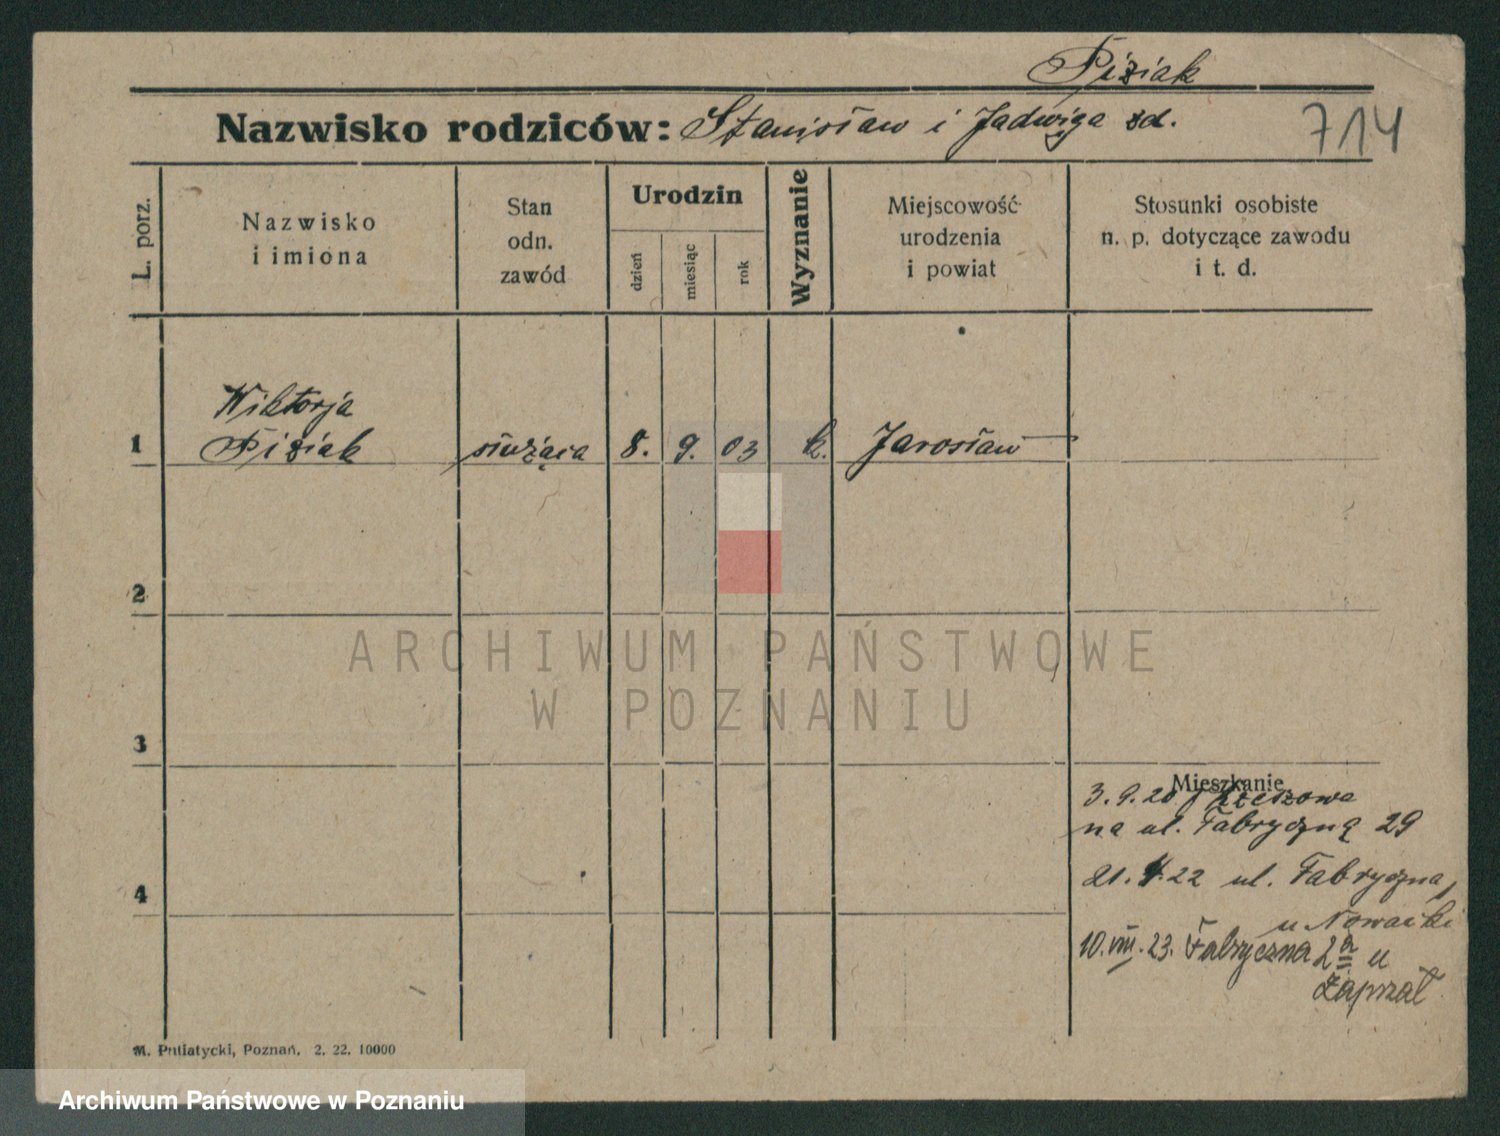 Piziak
Nazwisko rodziców: Stanisław i Jadwiga zd.
714
L. porz.
Nazwisko
i imiona
Stan
odn.
zawód
Urodzin
dzień
miesiąc
rok
Wyznanie
Miejscowość
urodzenia
i powiat
Stosunki osobiste
n. p. dotyczące zawodu
i t. d.
Wiktorja
1 Piziak służąca 8. 9. 03 k. Jarosław
2
ARCHIWUM PAŃSTWOWE
W POZNANIU
3
Mieszkanie
3.9.20 Rzeszowa
na ul. Fabryczną 29
4
21. 22 ul. Fabryczna
u Nowacki
10.VIII.23. Fabryczna 2a u
Zaprzał
M. Putiatycki, Poznań. 2. 22. 10000
Archiwum Państwowe w Poznaniu